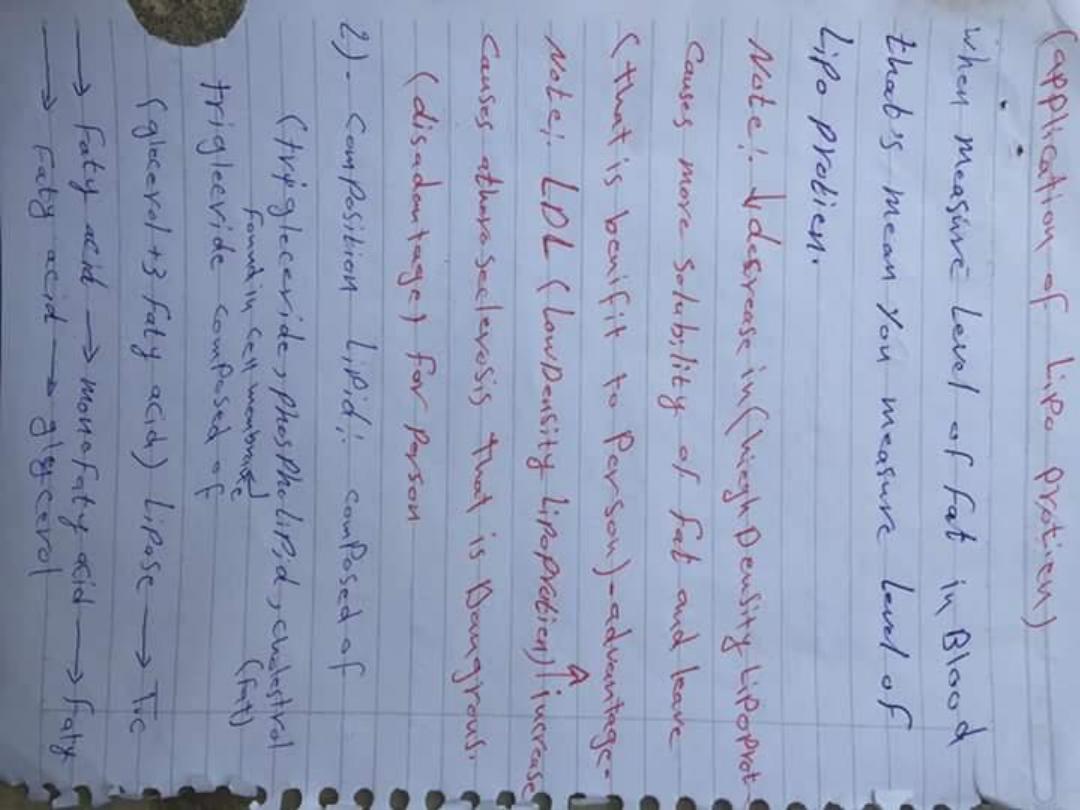 (application of Lipo protien)
when measure Level of fat in Blood
that's mean you measure Level of
Lipo protien.
Note! ↓ desrease in (hiegh Density LipoProt
Causes more solubility of fat and leave
(that is benifit to Person)-advantage-
Note! LDL (LowDensity LipoProtien)↑ increase
Causes atheroseclerosis that is Dangrous.
(disadantage) for Person
2)- Composition Lipid: composed of
(tri gleceride, phosPholiPid, cholestrol
found in cell membrane (fat)
trigleceride composed of
(glocerol +3 faty acid) Lipase → To
→ faty acid → monofaty acid → faty
→ faty acid → glycerol